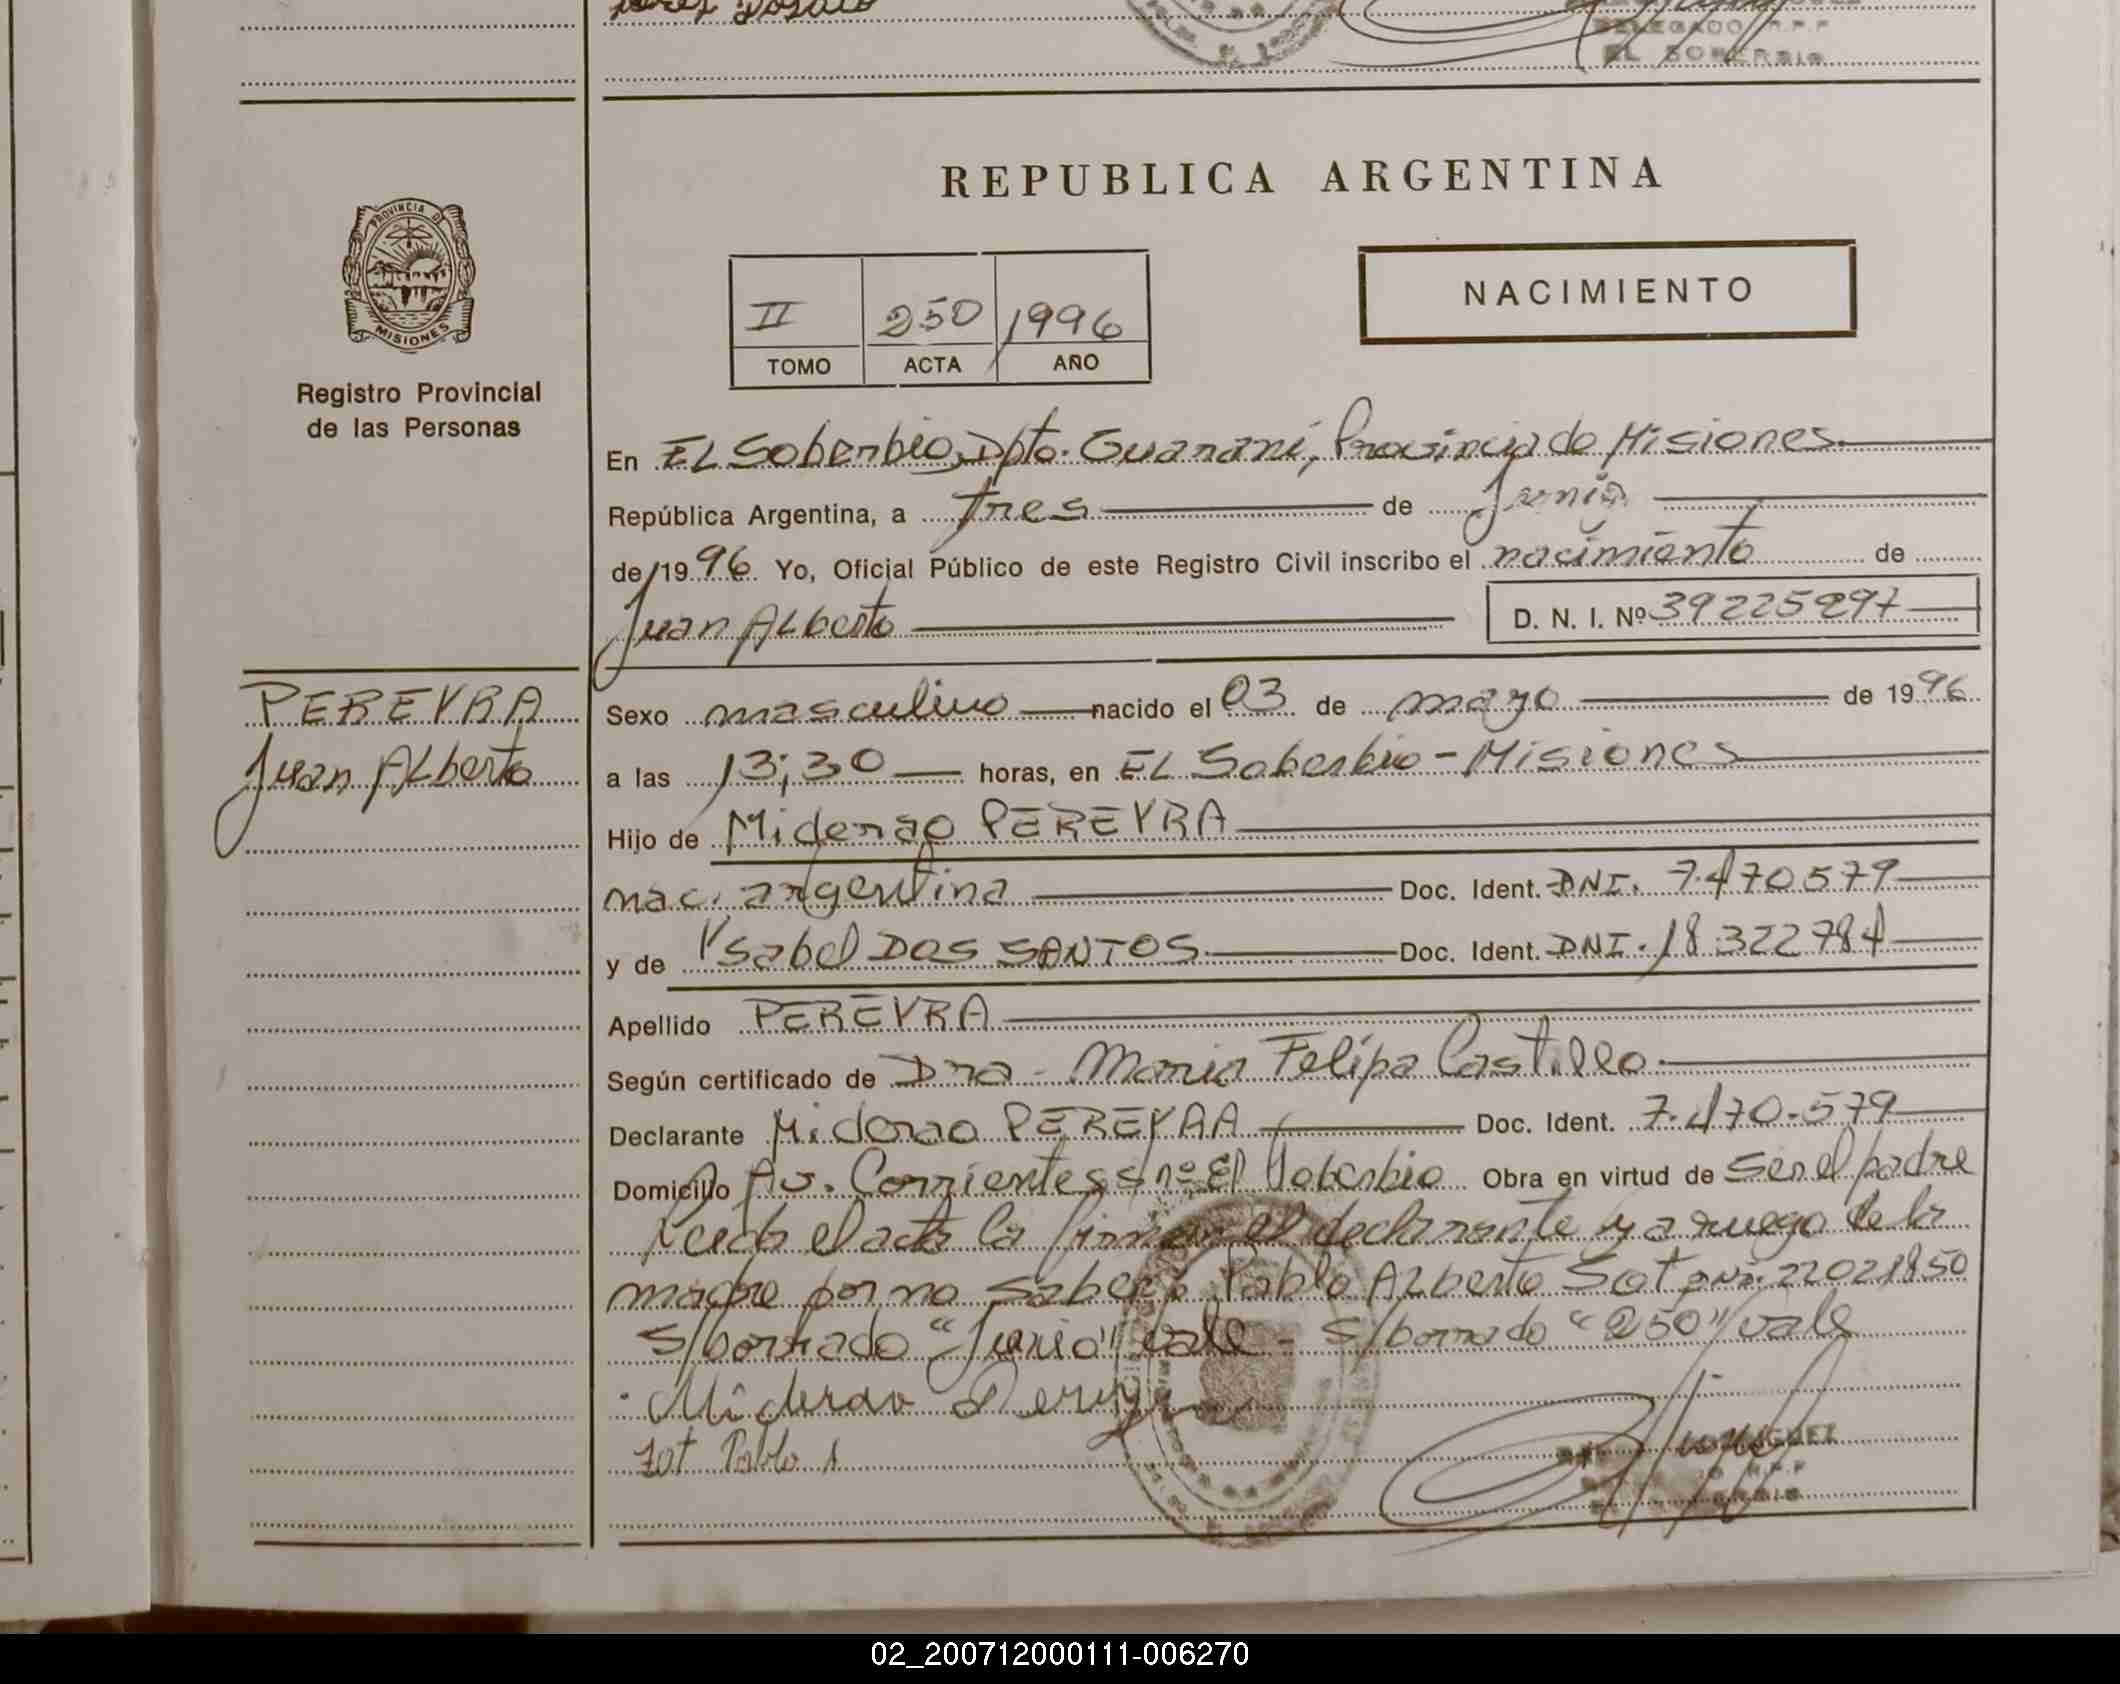 DELEGADO R.P.P.
EL SOBERBIO
REPUBLICA ARGENTINA
PROVINCIA DE
MISIONES
NACIMIENTO
II 250 1996
TOMO ACTA AÑO
Registro Provincial
de las Personas
En EL Soberbio, Dpto. Guaraní, Provincia de Misiones
República Argentina, a tres de Junio
de 1996 Yo, Oficial Público de este Registro Civil inscribo el nacimiento de
Juan ALberto D. N. I. Nº 39225297
PEREYRA
Juan ALberto
Sexo masculino nacido el 03 de mayo de 1996
a las 13;30 horas, en EL Soberbio - Misiones
Hijo de Miderao PEREYRA
nac. argentina Doc. Ident. DNI. 7.470579
y de Ysabel DOS SANTOS Doc. Ident. DNI. 18.322784
Apellido PEREYRA
Según certificado de Dra. Maria Felipa Castillo
Declarante Miderao PEREYRA Doc. Ident. 7.470.579
Domicilio Av. Corrientes s nº El Soberbio Obra en virtud de ser el padre
Leida el acta la firman el declarante y a ruego de la
madre por no saber Pablo ALberto Sot DNI. 22021850
S/borrado "Junio" vale - S/borrado "250" vale
Miderao Pereyra
Sot Pablo A
02_200712000111-006270